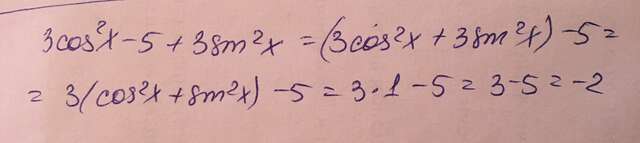 3cos²x - 5 + 3sin²x = (3cos²x + 3sin²x) - 5 =
= 3(cos²x + sin²x) - 5 = 3·1 - 5 = 3 - 5 = -2